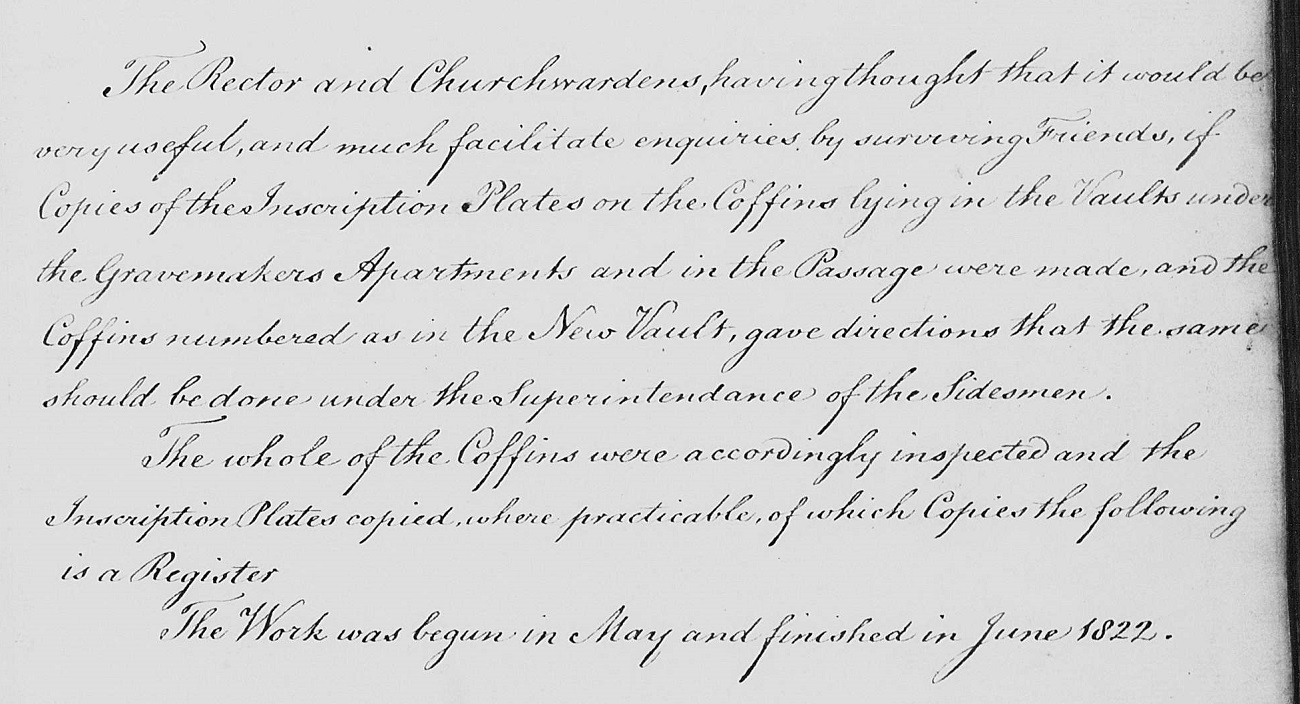 The Rector and Churchwardens, having thought that it would be
very useful, and much facilitate enquiries by surviving Friends, if
Copies of the Inscription Plates on the Coffins lying in the Vaults under
the Gravemakers Apartments and in the Passage were made, and the
Coffins numbered as in the New Vault, gave directions that the same
should be done under the Superintendance of the Sidesmen.
The whole of the Coffins were accordingly inspected and the
Inscription Plates copied, where practicable, of which Copies the following
is a Register
The Work was begun in May and finished in June 1822.